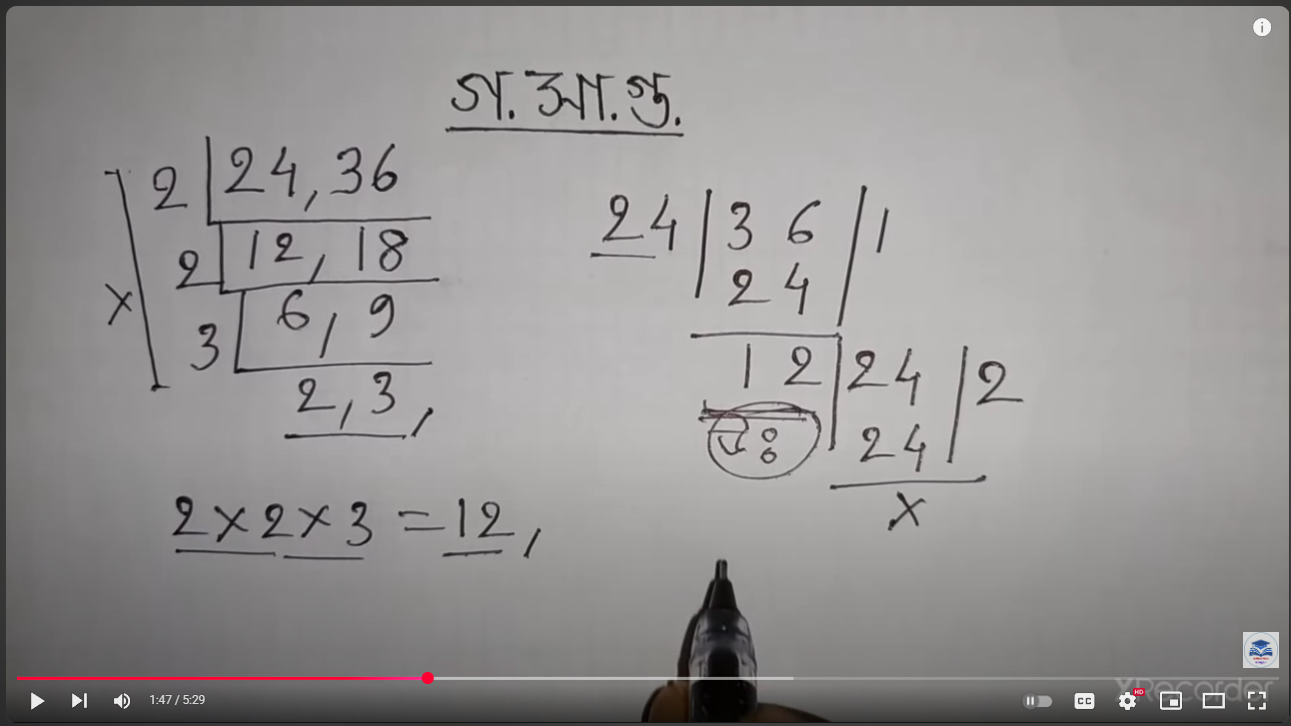 গ.সা.গু.
2 24, 36
2 12, 18
3 6, 9
2, 3,
2 × 2 × 3 = 12,
24 36 1
24
12 24 2
উঃ 24
×
1:47 / 5:29
CC
HD
XRecorder